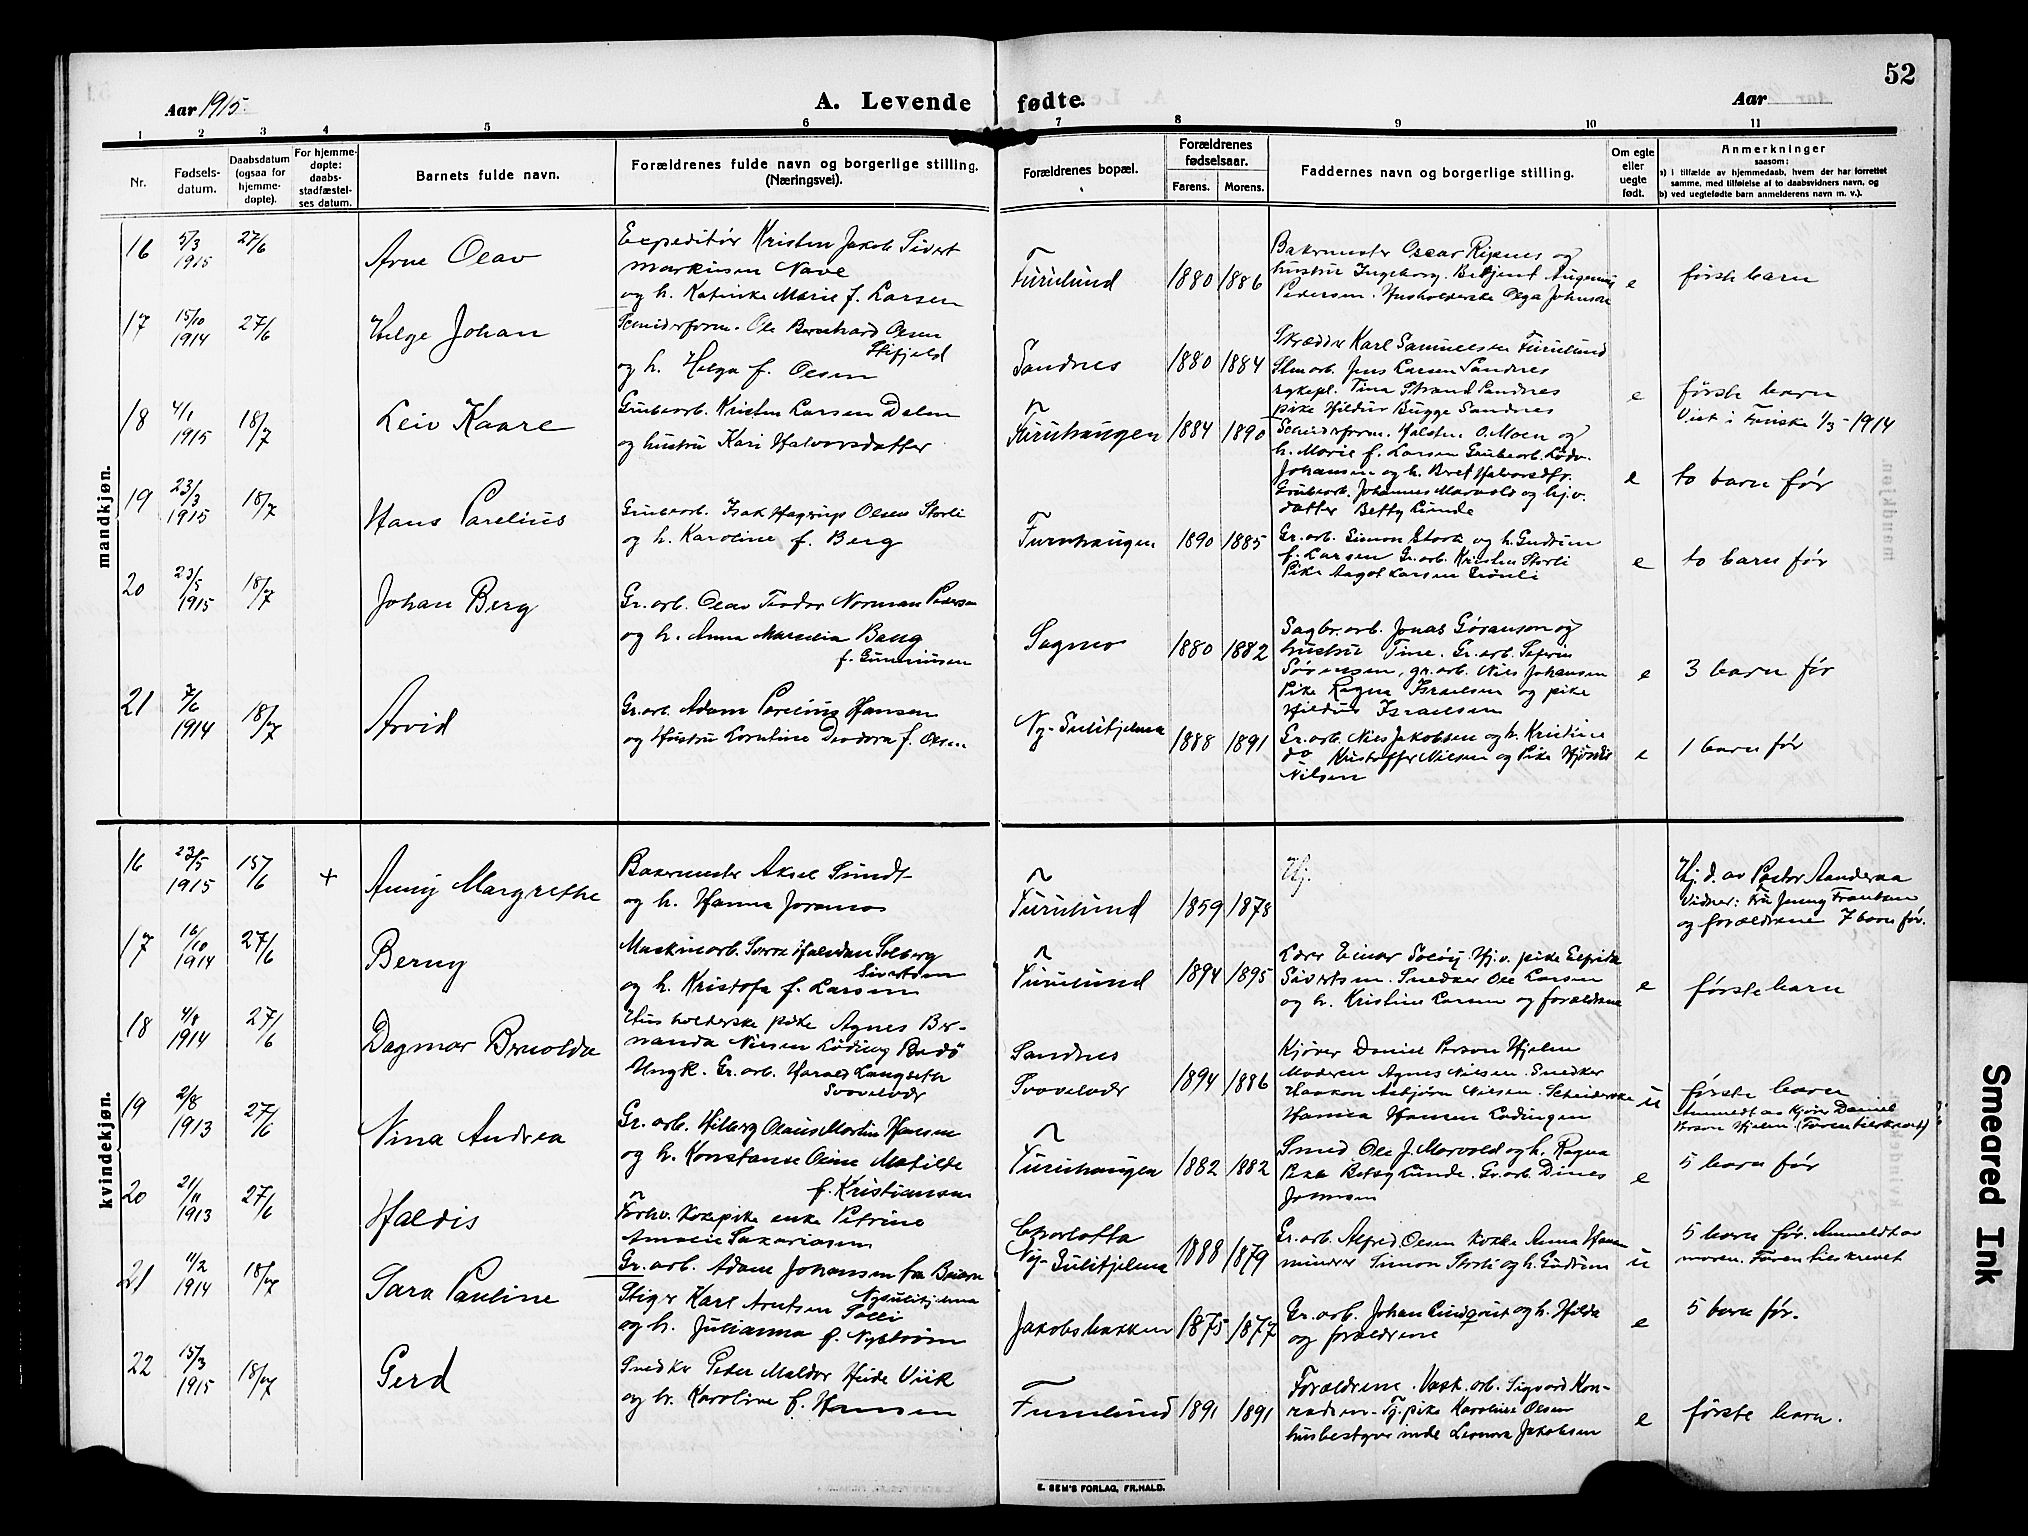 52
Aar 1915.
A. Levende fødte.
Aar
1 2 3 4 5 6 7 8 9 10 11
Nr.
Fødsels-
datum.
Daabsdatum
(ogsaa for
hjemme-
døpte).
For hjemme-
døpte:
daabs-
stadfæstel-
ses datum.
Barnets fulde navn.
Forældrenes fulde navn og borgerlige stilling.
(Næringsvei).
Forældrenes bopæl.
Forældrenes
fødselsaar.
Farens. Morens.
Faddernes navn og borgerlige stilling.
Om egte
eller
uegte
født.
Anmerkninger
saasom:
a) i tilfælde av hjemmedaab, hvem der har forrettet
samme, med tilføielse af to daabsvidners navn, og
b) ved uegtefødte barn anmelderens navn m. v.).
mandkjøn.
16
5/3
1915
27/6
Arne Olav
Expeditør Kristen Jakob Sivert
Markusen Nave
og h. Katinka Marie f. Larsen
Furulund
1880 1886
Bakermester Oscar Ripnes og
hustru Ingeborg. Betjent
Pedersen. Husholderske Olga Johnsen
e
første barn
17
15/10
1914
27/6
Helge Johan
Ole Bernhard Olsen
og h. Helga f. Olsen
Sandnes
1880 1884
Skrædder Karl Samuelsen Furulund
Jens Larsen Sandnes
Tina Strand Sandnes
pike Hildur Bugge Sandnes
e
første barn
Viet i Finske 1/3-1914
18
4/1
1915
18/7
Leiv Kaare
Grubearb. Kristen Larsen Dalen
og hustru Kari Halvorsdatter
Furuhaugen
1884 1890
Halsten O. Moen og
h. Marie f. Larsen Grubearb. Lodv.
Johansen og h. Bret Halvorsdtr.
e
to barn før
19
23/3
1915
18/7
Hans Parelius
Grubearb. Isak Hagerup Olsen Storli
og h. Karoline f. Berg
Furuhaugen
1890 1885
Grubearb. Johannes Marvold og hj.v.
datter Betty Lunde
Gr. arb. Simon Stork og h. Gudrun
f. Larsen Gr. arb. Kristen Storli
Pike Aagot Larsen Grönli
e
to barn før
20
23/5
1915
18/7
Johan Berg
Gr. arb. Olav Teodor Norman Pedersen
og h. Anna Marselia Bang
f. Gunniusen
Sagmo
1880 1882
Sagbr. arb. Jonas Göranson og
hustru Tine. Gr. arb. Severin
Sørensen, gr. arb. Nils Johansen
Pike Ragna Israelsen og pike
Hildur Israelsen
e
3 barn før
21
7/6
1914
18/7
Arvid
Gr. arb. Adam Parelius Hansen
og hustru Lorntine Deodora f. Olsen
Ny-Sulitjelma
1888 1891
Gr. arb. Nils Jakobsen og h. Kristine
do Kristoffer Nilsen og Pike Hjørdis
Nilsen
e
1 barn før
kvindekjøn.
16
23/5
1915
15/6
+
Anny Margrethe
Bakermester Aksel Sundt
og h. Hanna
Furulund
1859 1878
Hj.
Hj. d. av Pastor Aanderaa
Vidner: Fru Jenny Frantzen
og forældrene 7 barn før.
17
16/10
1914
27/6
Berny
Maskinarb. Sverre Halvdan Solberg
Sivertsen
og h. Kristofa f. Larsen
Furulund
1894 1895
Lærer Einar Hj.v. pike Elfrida
Sivertsen. Snedker Ole Larsen
og h. Kristine Larsen og forældrene
e
første barn
18
1914
27/6
Dagmar Bernolda
Husholderske pike Agnes Ber-
nanda Nilsen Lødding Bodö
Ungk. Gr. arb. Harald Langseth
Svovelvær
Sandnes
Svovelvær
1894 1886
Kjører Daniel Person Hjelm
Moderen Agnes Nilsen. Snedker
Haakon Asbjörn Nilsen.
Hanna Hansen Lødingen
u
første barn
Anmeldt av kjører Daniel
Person Hjelm. (Foren. tilskrevet)
19
2/8
1913
27/6
Nina Andrea
Gr. arb. Hilberg Olaus Martin Hansen
og h. Konstanse Oline Matilde
f. Kristiansen
Furuhaugen
1882 1882
Smed Ole J. Marvold og h. Ragna
Pike Betsy Lunde. Gr. arb. Dines
e
5 barn før
20
21/11
1913
27/6
Haldis
Forhv. Kokepike enke Petrine
Amalie Sakariasen
Gr. arb. Adam Johansen fra Beiarn
Nysulitjelma
Charlotta
Ny-Sulitjelma
1888 1879
Gr. arb. Alfred Olsen Kokke Anna Hansen
minerer Simon Storli og h. Gudrun
u
5 barn før. Anmeldt av
moren. Foren tilskrevet
21
11/2
1914
18/7
Sara Pauline
Stiger Karl Arntsen Solli
og h. Julianna f. Nyström
Jakobsbakken
1875 1877
Gr. arb. Johan Lindqvist og h. Hilda
og forældrene
e
5 barn før.
22
15/3
1915
18/7
Gerd
Snedker Peder Meldor Heide Viik
og h. Karoline f. Hansen
Furulund
1891 1891
Forældrene. Vask. arb. Sigvard Kon-
radsen. Tj. pike Karoline Olsen
husbestyrerinde Leonora Jakobsen
e
første barn.
E. SEM'S FORLAG, FR.HALD.
Smeared Ink